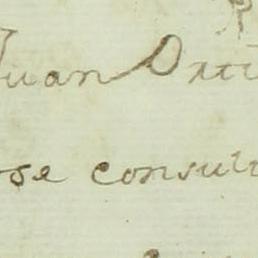 Juan Orti
ose consult